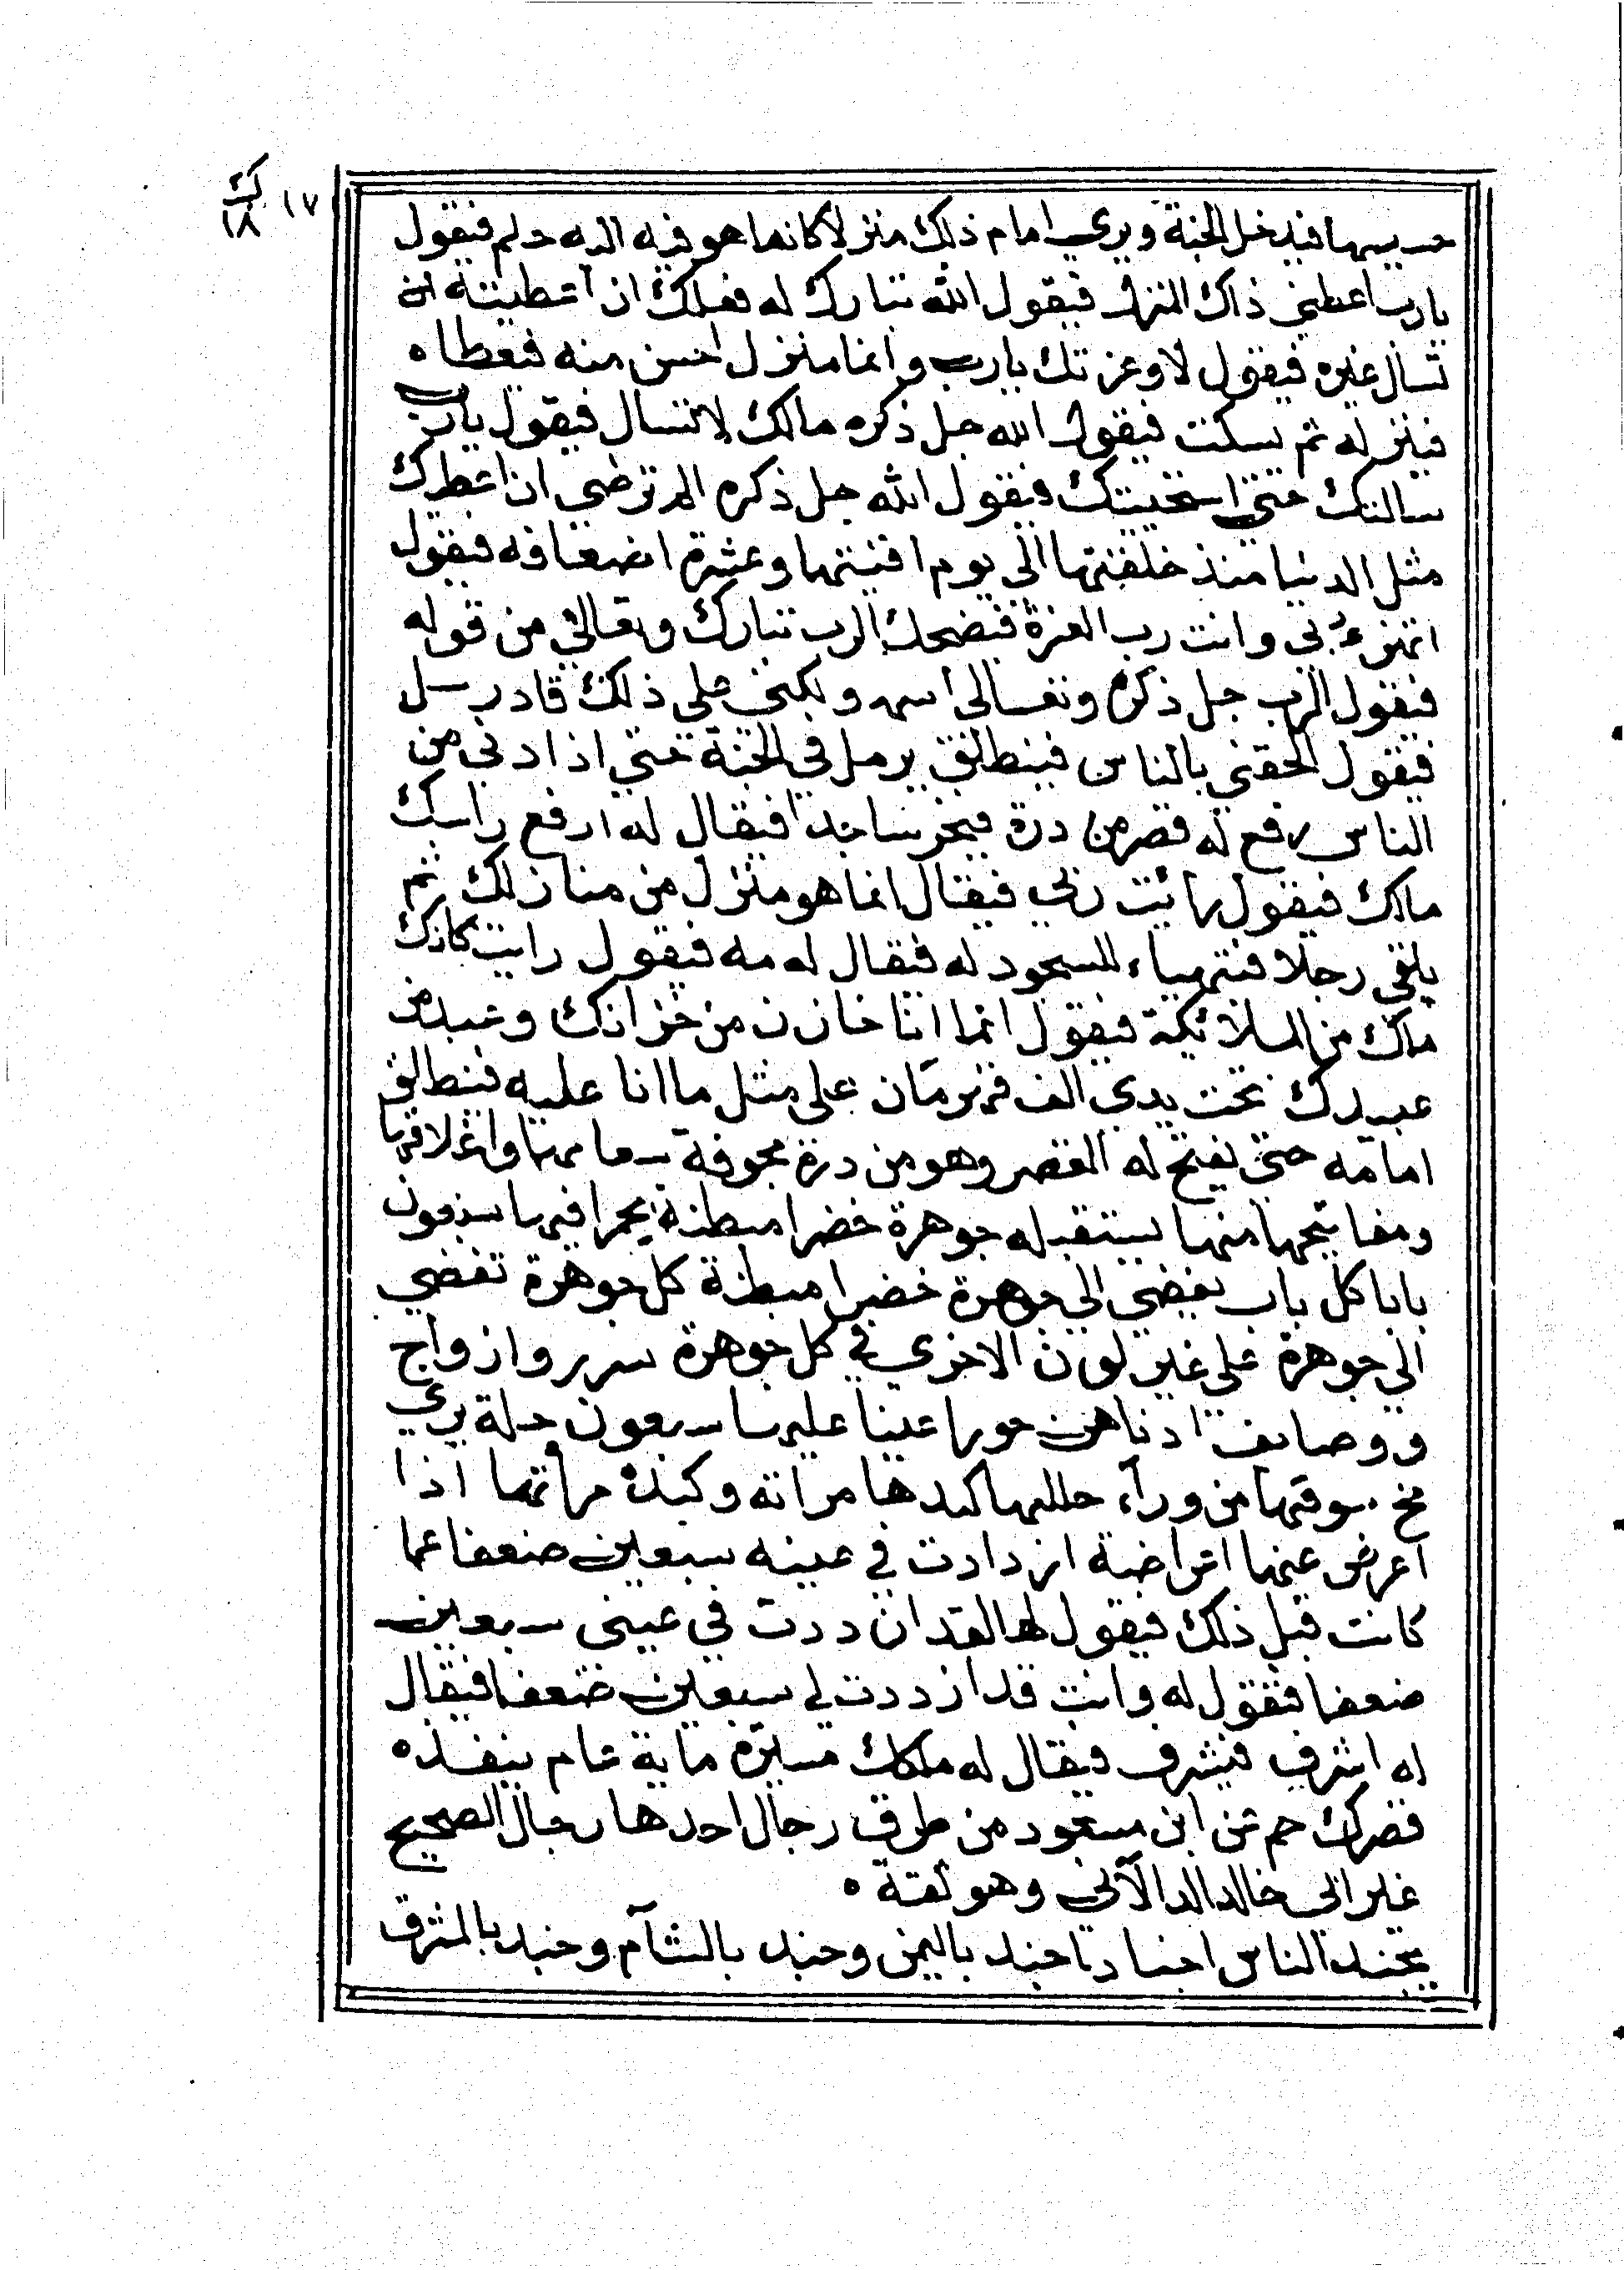 ١٧ ك
١٨
حسيسها فيدخل الجنة ويري امام ذلك منزلا كانما هو فيه اليه حلم فيقول
يارب اعطني ذاك المنزل فيقول الله تبارك له فعلك ان اعطيته ان
تسال غيره فيقول لا وعزتك يارب وانما منزل احسن منه فيعطاه
فينزله ثم يسكت فيقول الله جل ذكره مالك لا تسال فيقول يارب
سالتك حتي استحييتك فيقول الله جل ذكره الم ترضي ان اعطيك
مثل الدنيا منذ خلقتها الي يوم افنيتها وعشرة اضعافه فيقول
اتهزء بي وانت رب العزة فيضحك الرب تبارك وتعالي من قوله
فيقول الرب جل ذكره وتعالى اسمه ولكني علي ذلك قادر سل
فيقول الحقني بالناس فينطلق يرمل في الجنة حتي اذا دني من
الناس رفع له قصر من درة فيخر ساجدا فيقال له ارفع راسك
مالك فيقول رائيت ربي فيقال انما هو منزل من منازلك ثم
يلقي رجلا فتهياء للسجود له فيقال له مه فيقول رايت كانك
ملك من الملائكة فيقول انما انا خازن من خزانك وعبد من
عبيدك تحت يدي الف قهرمان على مثل ما انا عليه فينطلق
امامه حتى يفتح له القصر وهو من درة مجوفة سقايفها واغلاقها
ومفاتيحها منها يستقبله جوهرة خضرا مبطنة بحمرا فيها سبعون
بابا كل باب يفضي الي جوهرة خضرا مبطنة كل جوهرة تفضي
الي جوهرة علي غير لون الاخري في كل جوهرة سرر وازواج
ووصائف ادناهن حورا عينا عليها سبعون حلة يري
مخ سوقها من وراء حللها كبدها مراته وكبده مرأتها اذا
اعرض عنها اعراضة ازدادت في عينه سبعين ضعفا عما
كانت قبل ذلك فيقول لها لقد ازددت في عيني سبعين
ضعفا فتقول له وانت قد ازددت لي سبعين ضعفا فيقال
له اشرف فيشرف فيقال له ملكك مسيرة ماية عام ينفذه
قصرك حم عن ابن مسعود من طرق رجال احدها رجال الصحيح
غير ابي خالد الدالآني وهو ثقة ٥
يجند الناس اجنادا جند باليمن وجند بالشآم وجند بالمشرق